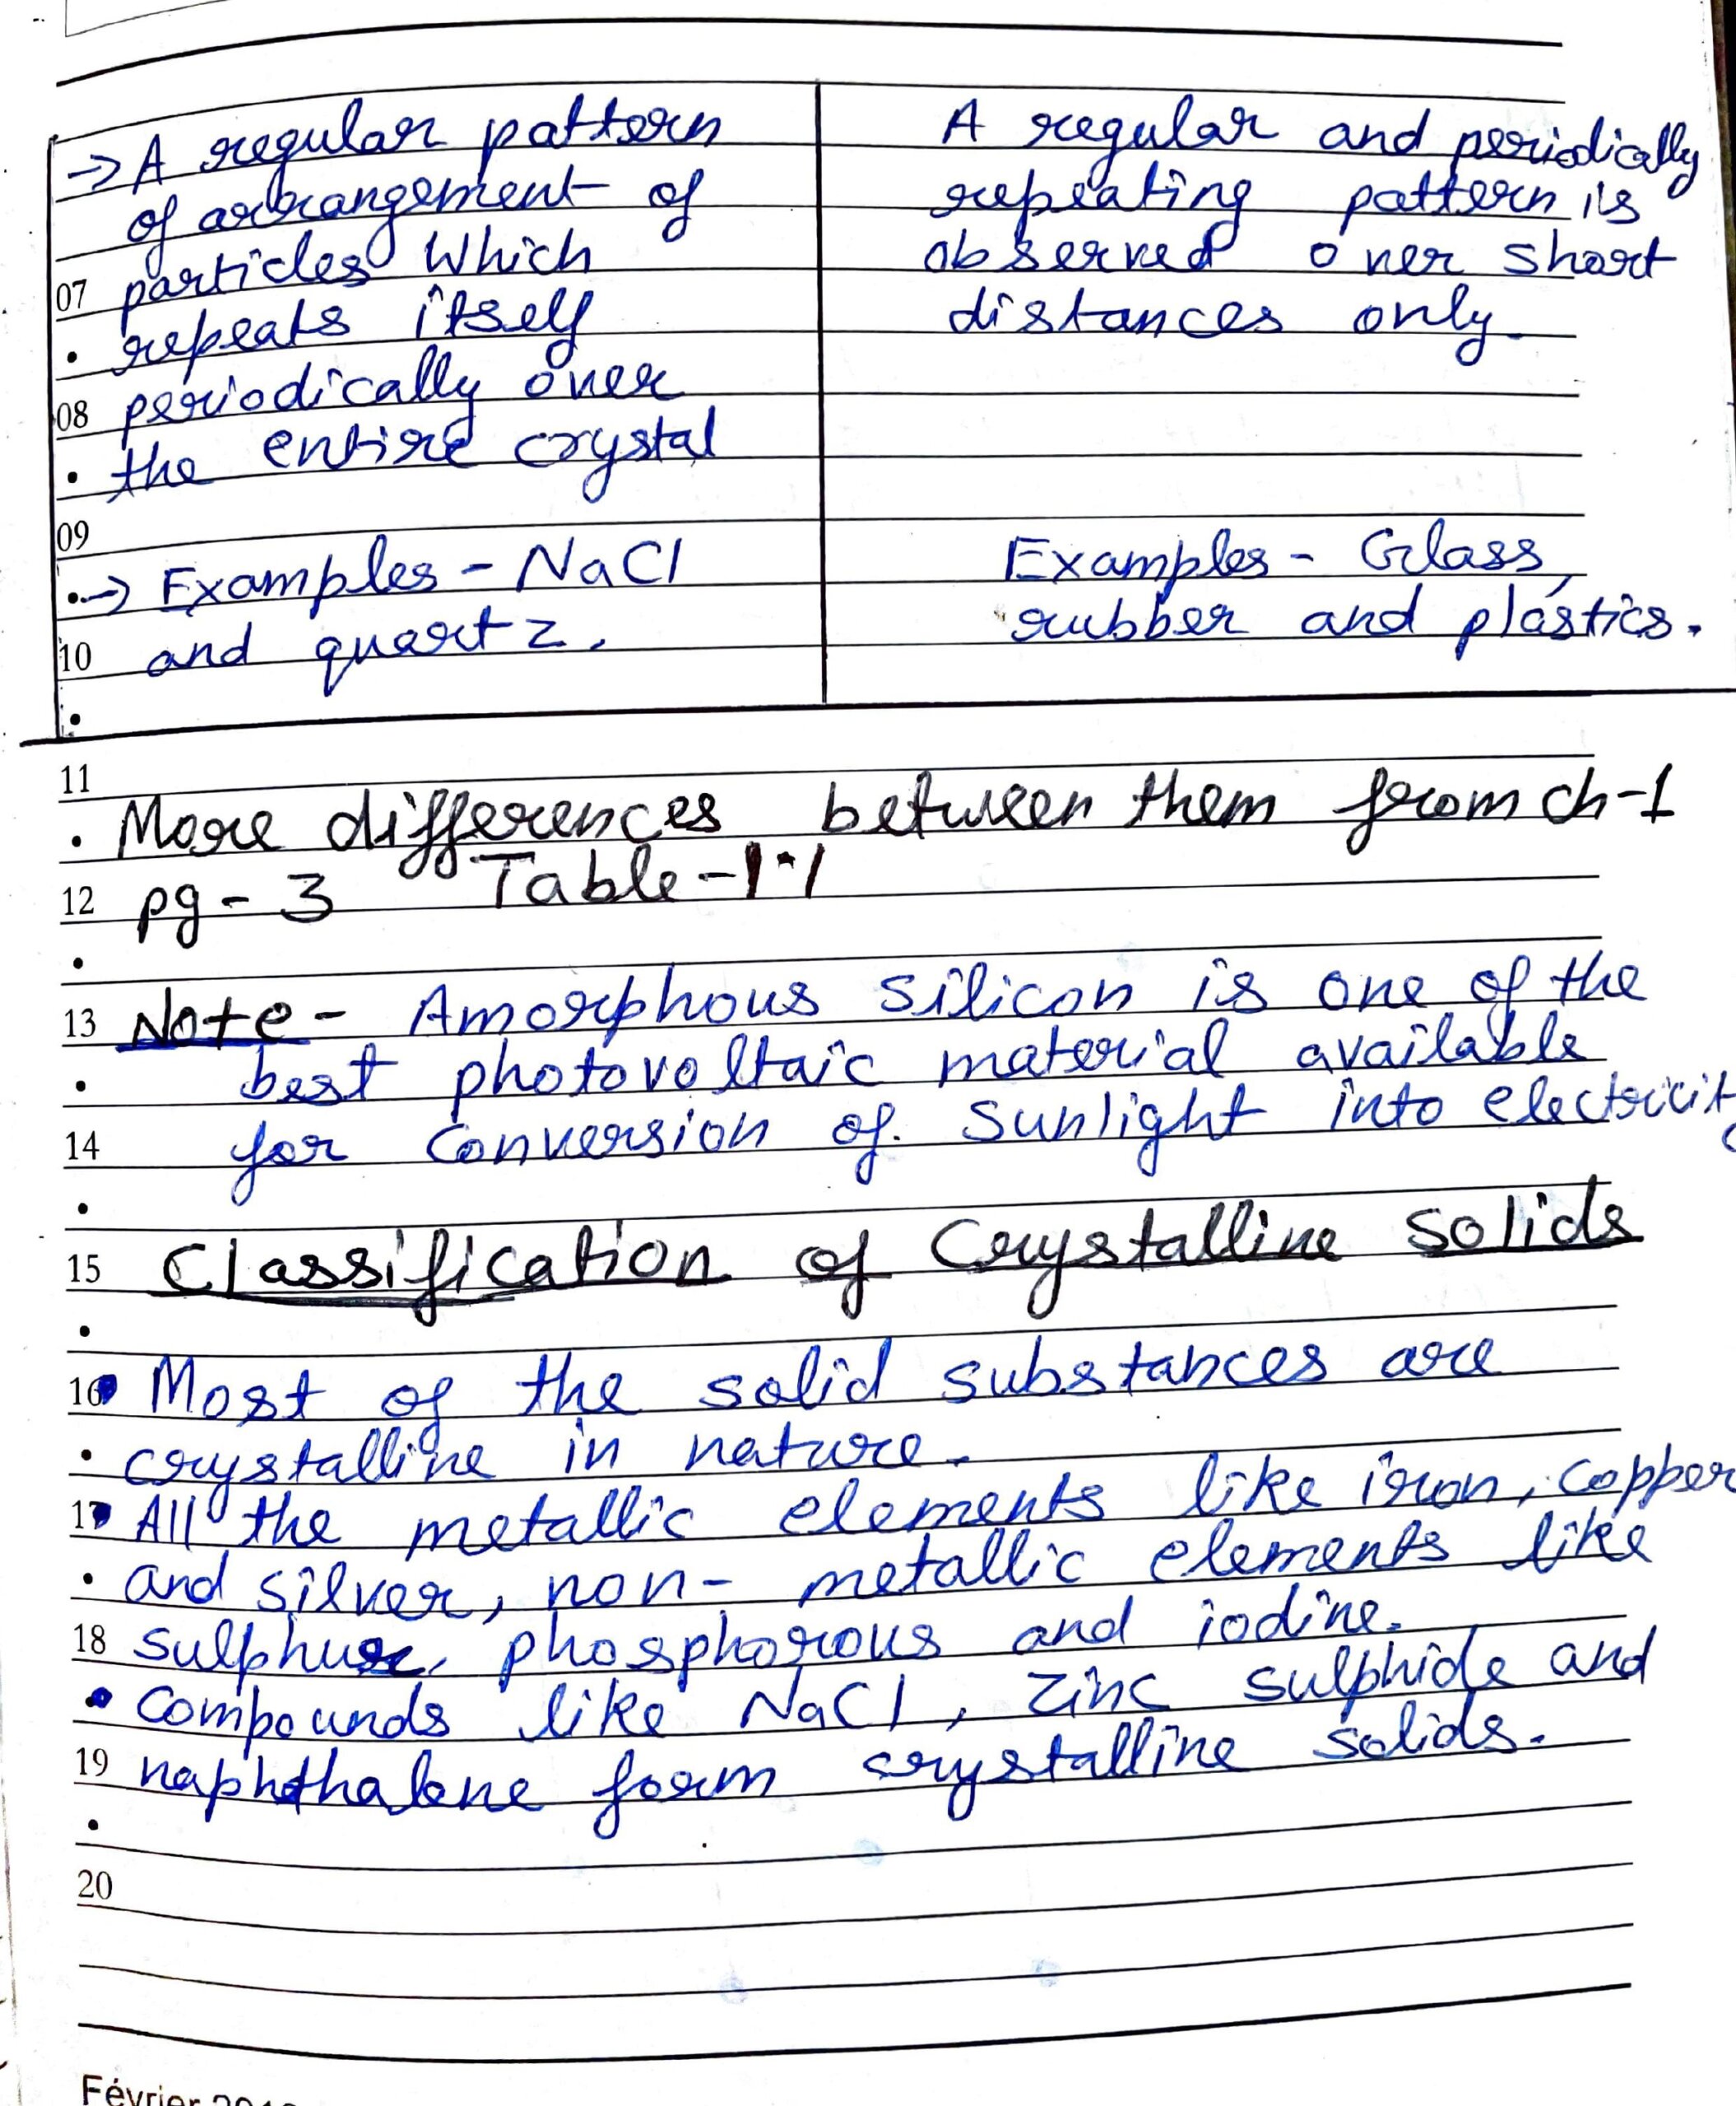 → A regular pattern
of arrangement of
particles which
repeats itself
periodically over
the entire crystal
→ Examples - NaCl
and quartz.
A regular and periodically
repeating pattern is
observed over short
distances only.
Examples - Glass,
rubber and plastics.
07
08
09
10
11
More differences between them from ch-1
12 pg - 3 Table - 1.1
13 Note - Amorphous silicon is one of the
best photovoltaic material available
14 for conversion of sunlight into electricit
15 Classification of Crystalline solids
16 • Most of the solid substances are
crystalline in nature.
17 • All the metallic elements like iron, copper
and silver, non-metallic elements like
18 sulphur, phosphorous and iodine.
• Compounds like NaCl, Zinc sulphide and
19 naphthalene form crystalline solids.
20
Février